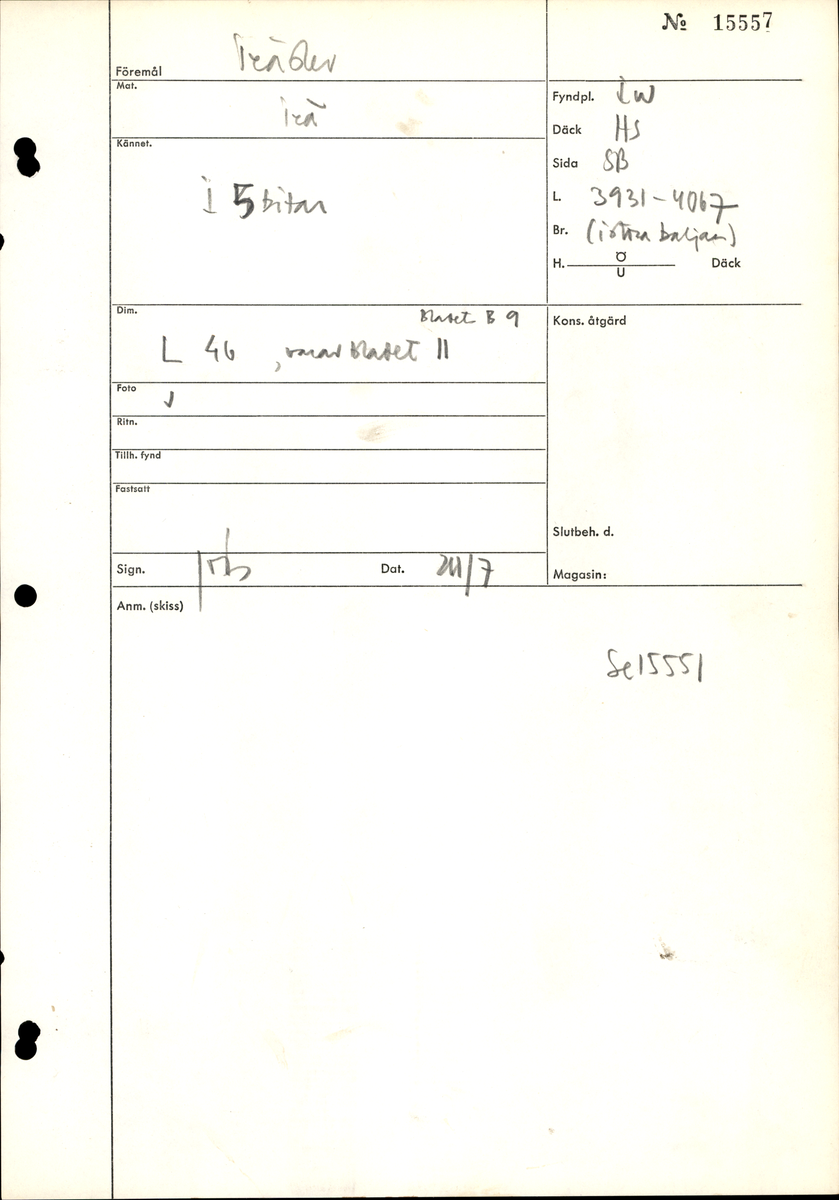 № 15557
Föremål Träslev
Mat. Trä
Kännet. i 5 bitar
Fyndpl. IW
Däck HS
Sida SB
L. 3931-4067
Br. (i östra baljan)
H. Ö/U Däck
Dim. bladet B 9
L 46, varav bladet 11
Foto
Ritn.
Tillh. fynd
Fastsatt
Sign. Dat. /7
Kons. åtgärd
Slutbeh. d.
Magasin:
Anm. (skiss)
Se 15551